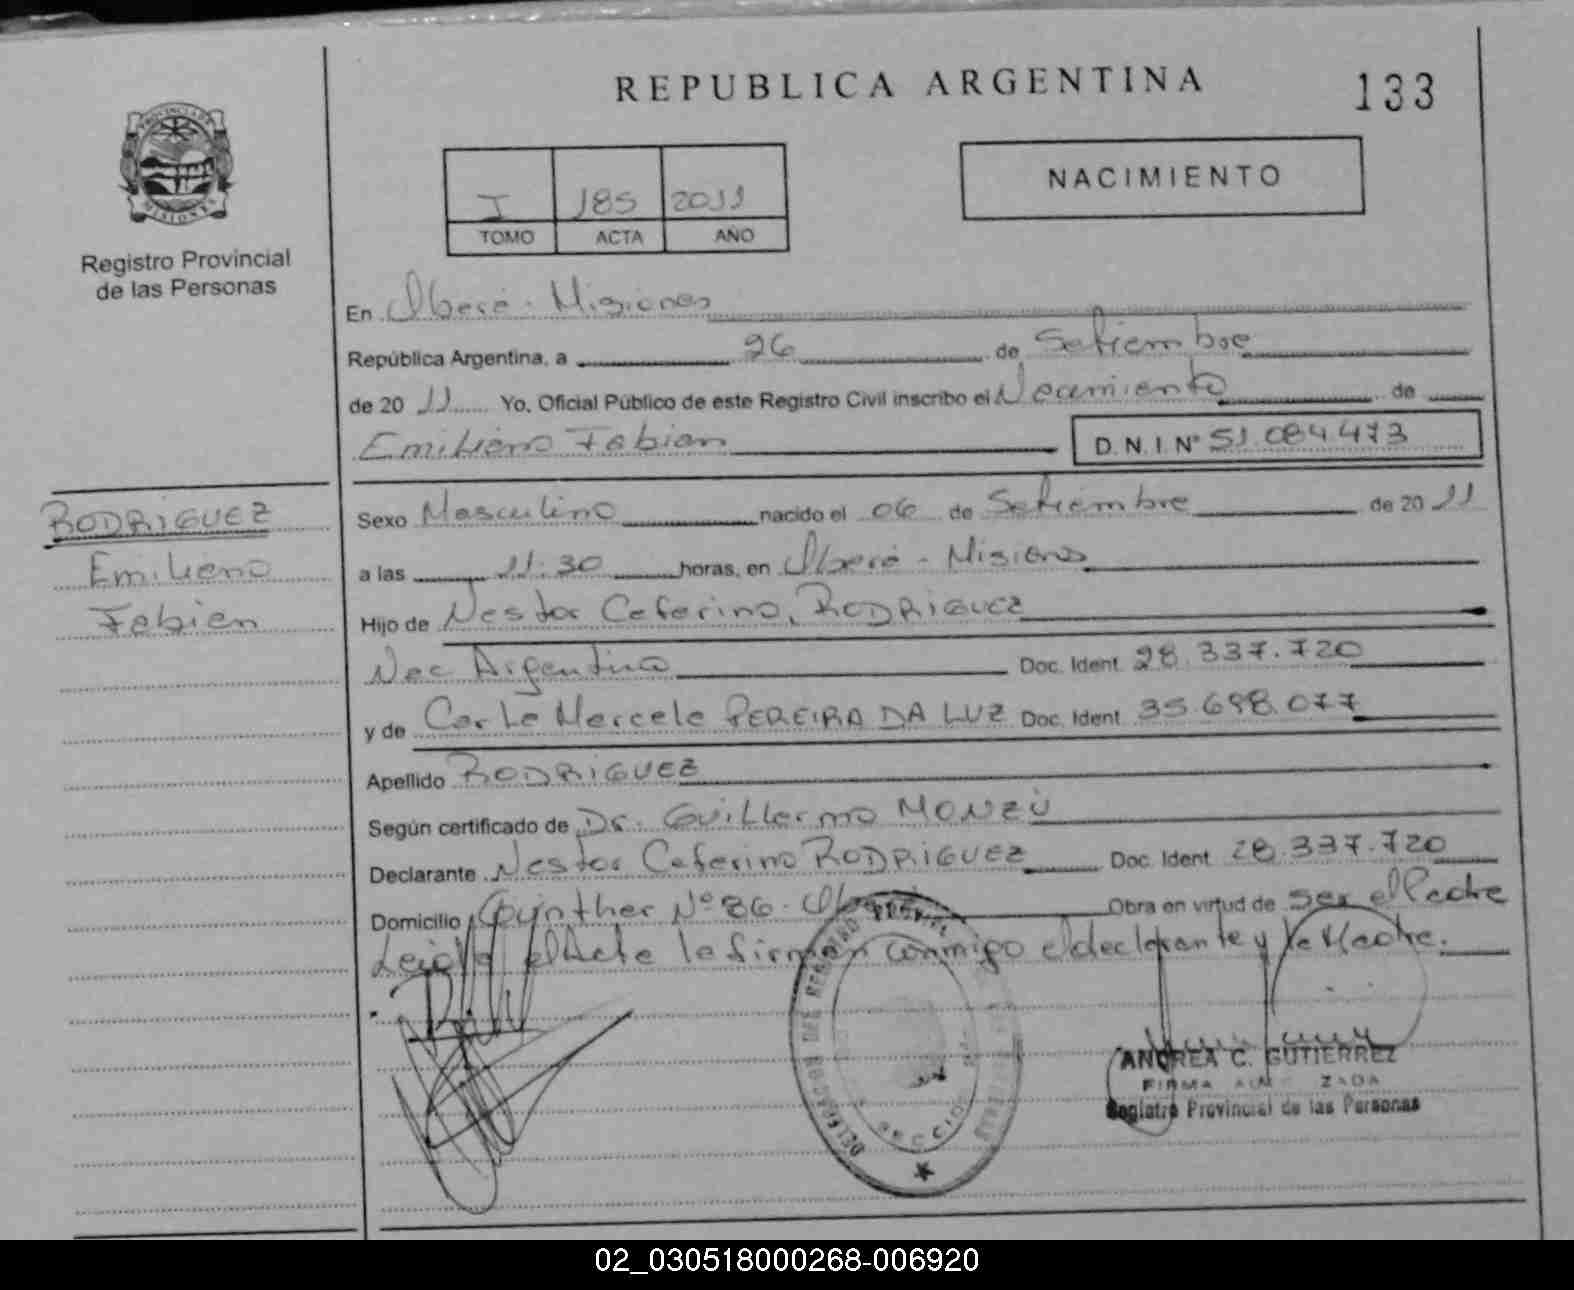 REPUBLICA ARGENTINA
133
PROVINCIA DE
MISIONES
Registro Provincial
de las Personas
I 185 2011
TOMO ACTA AÑO
NACIMIENTO
En Oberá - Misiones
República Argentina, a 26 de Setiembre
de 20 11 Yo, Oficial Público de este Registro Civil inscribo el Nacimiento de
Emiliano Fabian D.N.I. Nº 51.084.473
RODRIGUEZ
Emiliano
Fabian
Sexo Masculino nacido el 06 de Setiembre de 20 11
a las 11:30 horas, en Oberá - Misiones
Hijo de Nestor Ceferino, RODRIGUEZ
Nac Argentina Doc. Ident. 28.337.720
y de Carla Marcela PEREIRA DA LUZ Doc. Ident. 35.698.077
Apellido RODRIGUEZ
Según certificado de Dr. Guillermo MONZÚ
Declarante Nestor Ceferino RODRIGUEZ Doc. Ident. 28.337.720
Domicilio Nº 86 - Oberá Obra en virtud de ser el Padre
Leida el Acta la firman conmigo el declarante y la Madre.
ANDREA C. GUTIERREZ
FIRMA AUTORIZADA
Registro Provincial de las Personas
02_030518000268-006920